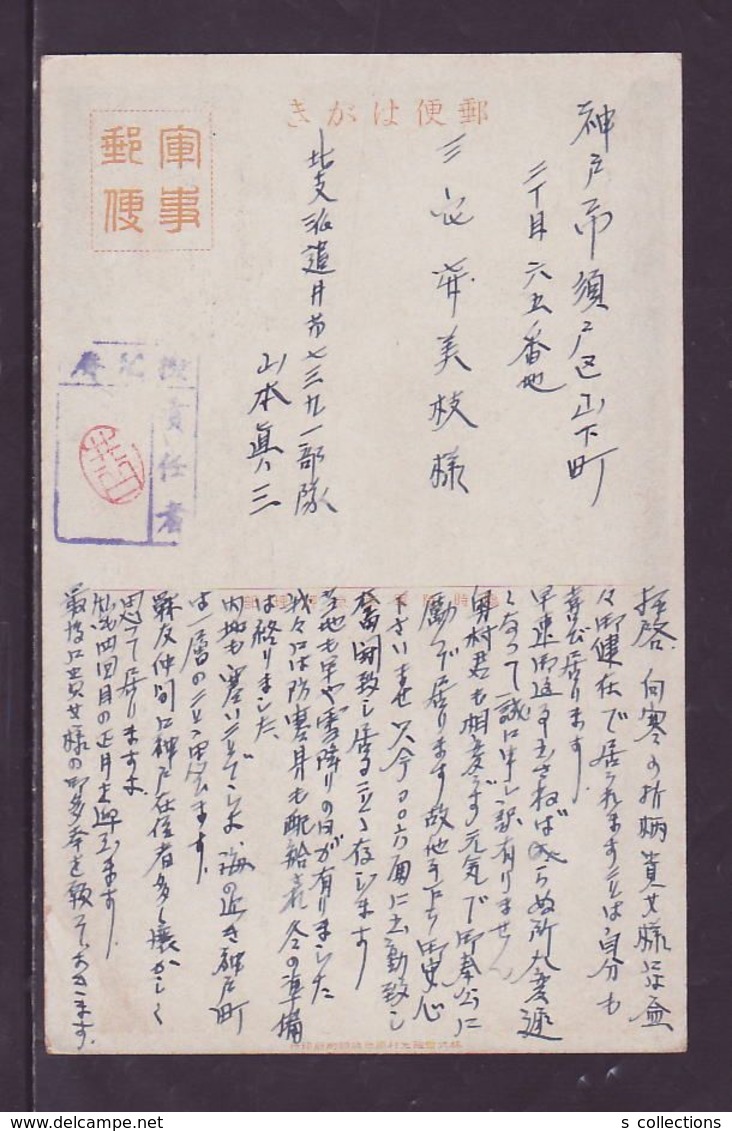 郵便はがき
軍事
郵便
神戸市須戸区山下町
二丁目六五番地
三 美枝様
北支派遣 第七三九一部隊
山本眞三
責任者
拝啓 向寒の折柄貴女様には益
々御健在で居られます 自分も
喜び居ります
早速御返事 ねばならぬ所大変遅
くなって誠に申し訳有りません
奥村君も相変らず元気で御奉公に
励んで居ります故他事 御安心
下さいませ 只今〇〇方面に出動致し
奮闘致し居る 存じます
当地も早や雪降りの日が有りました
我々には防寒具も配給され冬の準備
は終りました
内地も寒い でしょ 海の近き神戸町
は一層の 思います
戦友仲間に神戸在住者多く懐かしく
思って居りますよ
四回目の正月を迎えます
最後に貴女様の御多幸を祈っておきます
s collections